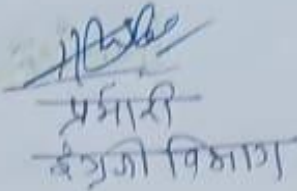 प्रभारी
इंग्रजी विभाग